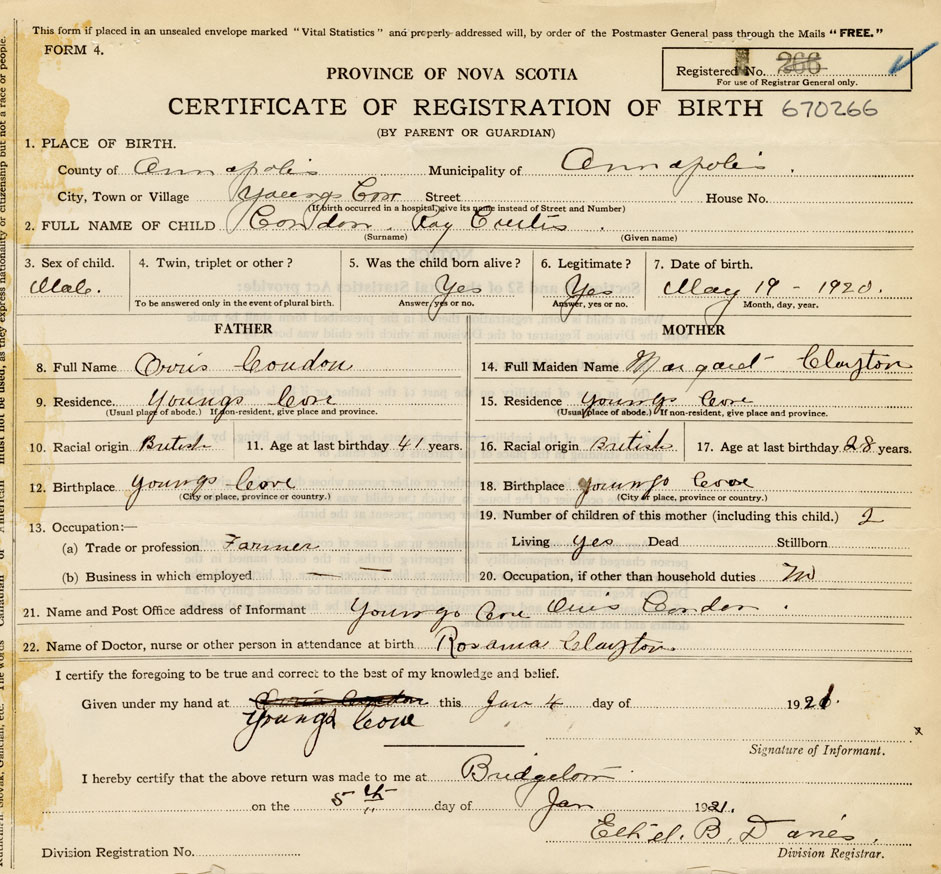 This form if placed in an unsealed envelope marked "Vital Statistics" and properly addressed will, by order of the Postmaster General pass through the Mails "FREE."
FORM 4.
Registered No. 266
For use of Registrar General only.
PROVINCE OF NOVA SCOTIA
CERTIFICATE OF REGISTRATION OF BIRTH 670266
(BY PARENT OR GUARDIAN)
1. PLACE OF BIRTH.
County of Annapolis Municipality of Annapolis
City, Town or Village Youngs Cove Street House No.
(If birth occurred in a hospital, give its name instead of Street and Number)
2. FULL NAME OF CHILD Condon Ray Curtis
(Surname) (Given name)
3. Sex of child. 4. Twin, triplet or other? 5. Was the child born alive? 6. Legitimate? 7. Date of birth.
Male. Yes Yes May 19 - 1920.
To be answered only in the event of plural birth. Answer, yes or no. Answer, yes or no. Month, day, year.
FATHER MOTHER
8. Full Name Ovris Condon 14. Full Maiden Name Margaret Clayton
9. Residence. Youngs Cove 15. Residence Youngs Cove
(Usual place of abode.) If non-resident, give place and province. (Usual place of abode.) If non-resident, give place and province.
10. Racial origin British 11. Age at last birthday 41 years. 16. Racial origin British 17. Age at last birthday 28 years.
12. Birthplace Youngs Cove 18. Birthplace Youngs Cove
(City or place, province or country.) (City or place, province or country.)
13. Occupation:— 19. Number of children of this mother (including this child.) 2
(a) Trade or profession Farmer Living yes Dead Stillborn
(b) Business in which employed — 20. Occupation, if other than household duties
21. Name and Post Office address of Informant Youngs Cove Condon.
22. Name of Doctor, nurse or other person in attendance at birth Rosanna Clayton
I certify the foregoing to be true and correct to the best of my knowledge and belief.
Given under my hand at Ovris Condon this Jan 4 day of 1921.
Youngs Cove
Signature of Informant.
I hereby certify that the above return was made to me at Bridgetown
on the 5th day of Jan 1921.
Ethel. B. Davies.
Division Registration No. Division Registrar.